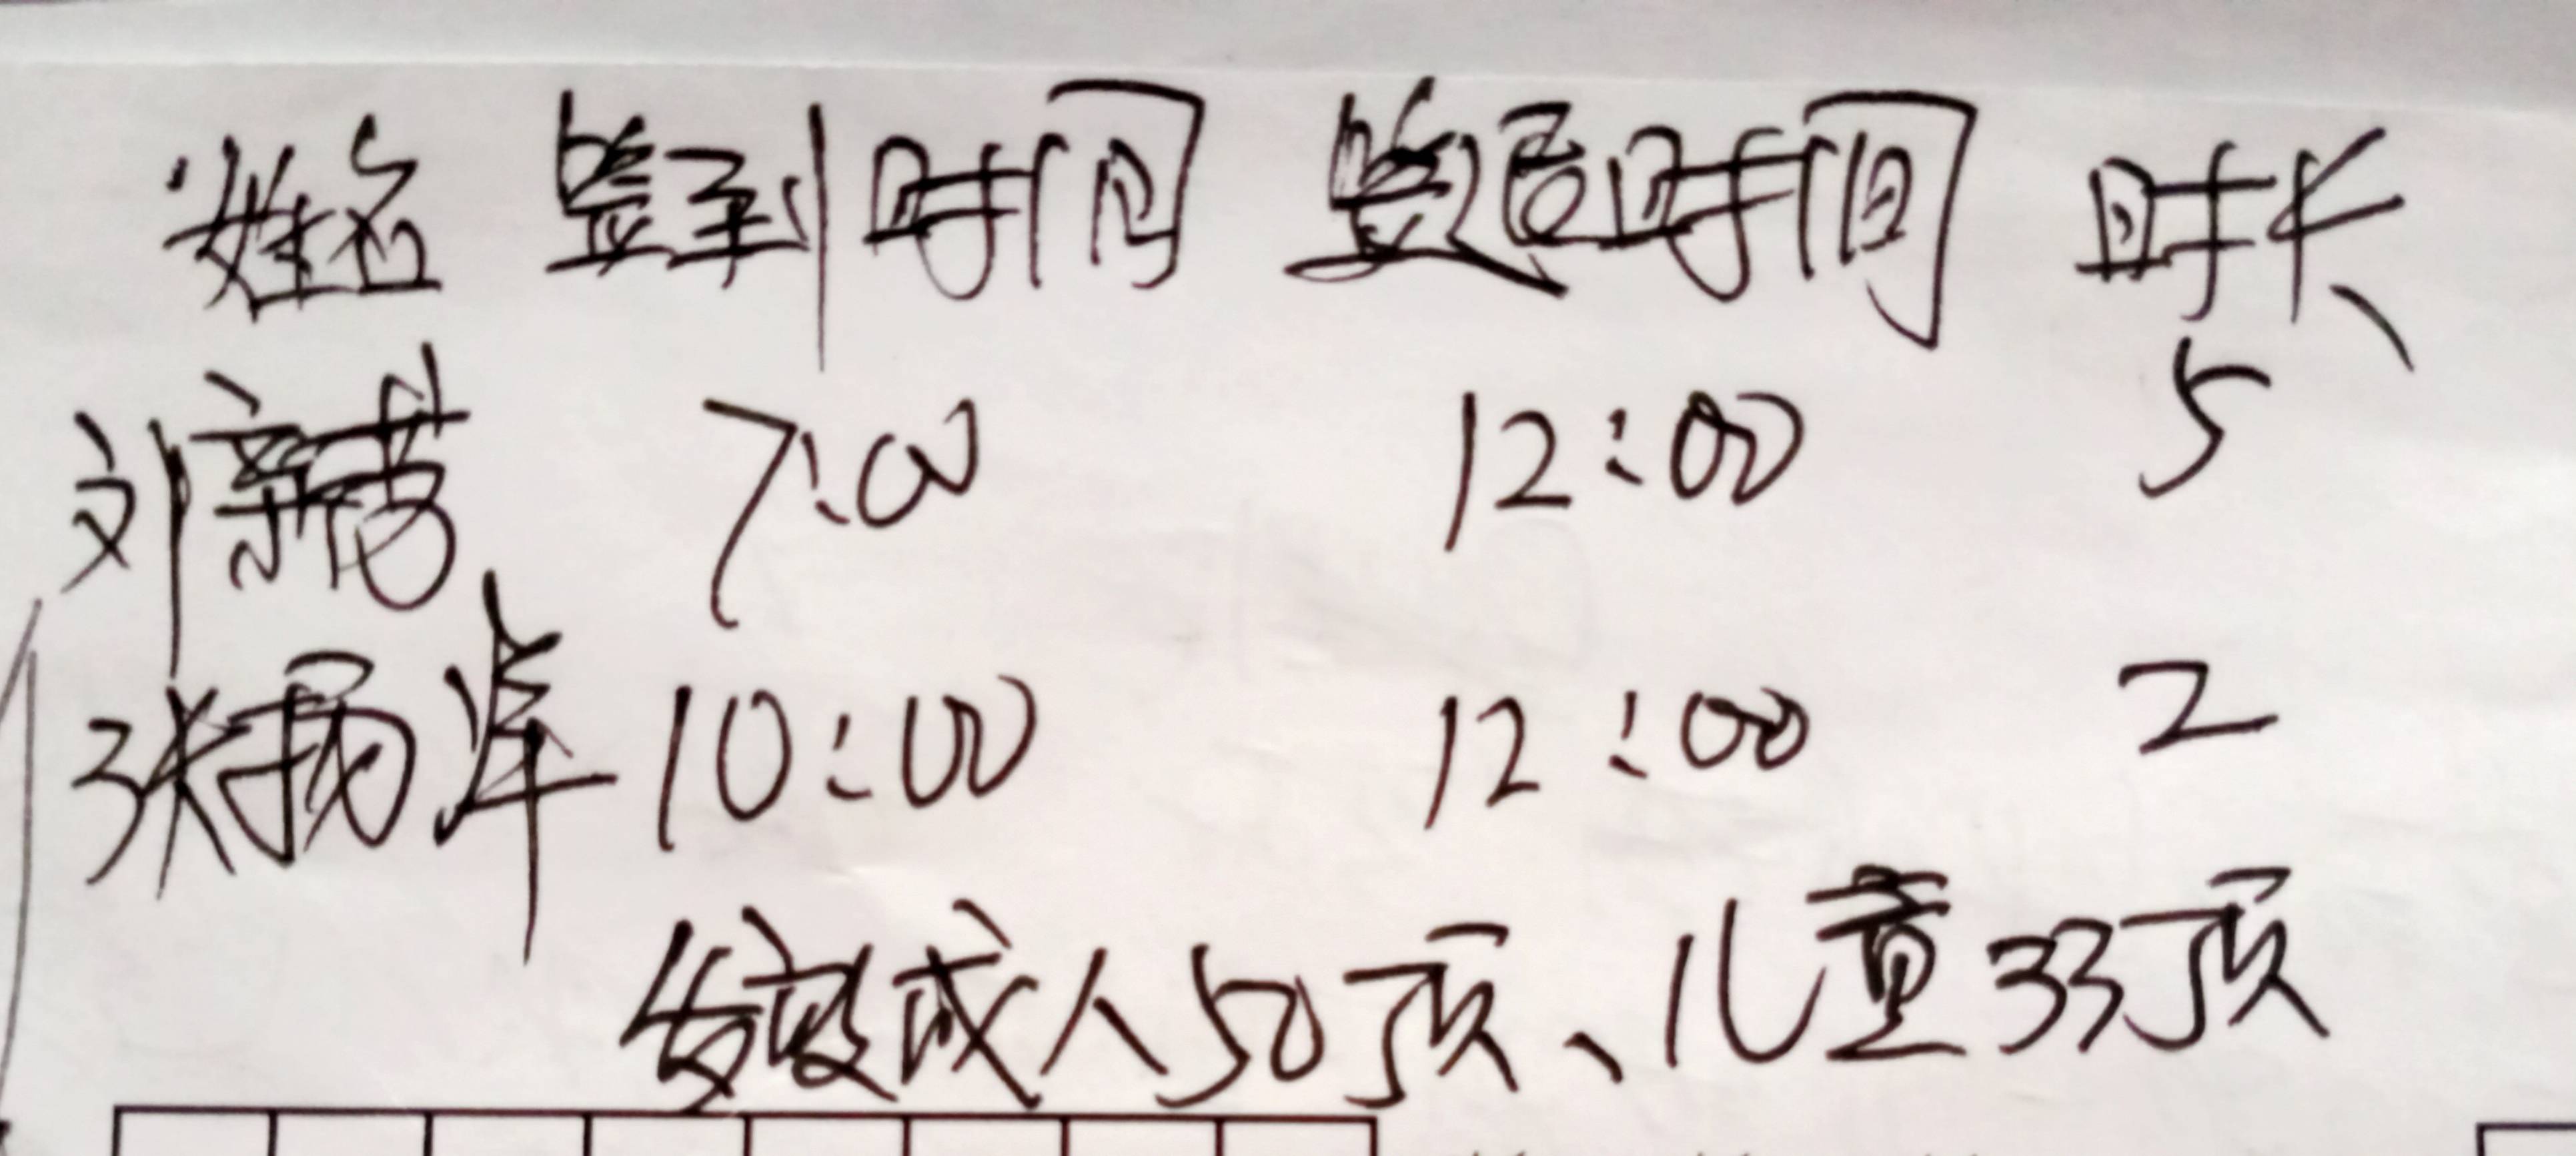 姓名 签到时间 签退时间 时长
刘新茹 7:00 12:00 5
张扬 10:00 12:00 2
发放成人50顶、儿童33顶